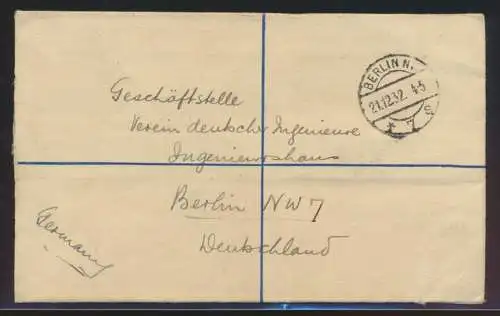 BERLIN N.
21.12.32. 4-5
* 7 S
Geschäftstelle
Verein deutscher Ingenieure
Ingenieurshaus
Berlin NW 7
Deutschland
Germany